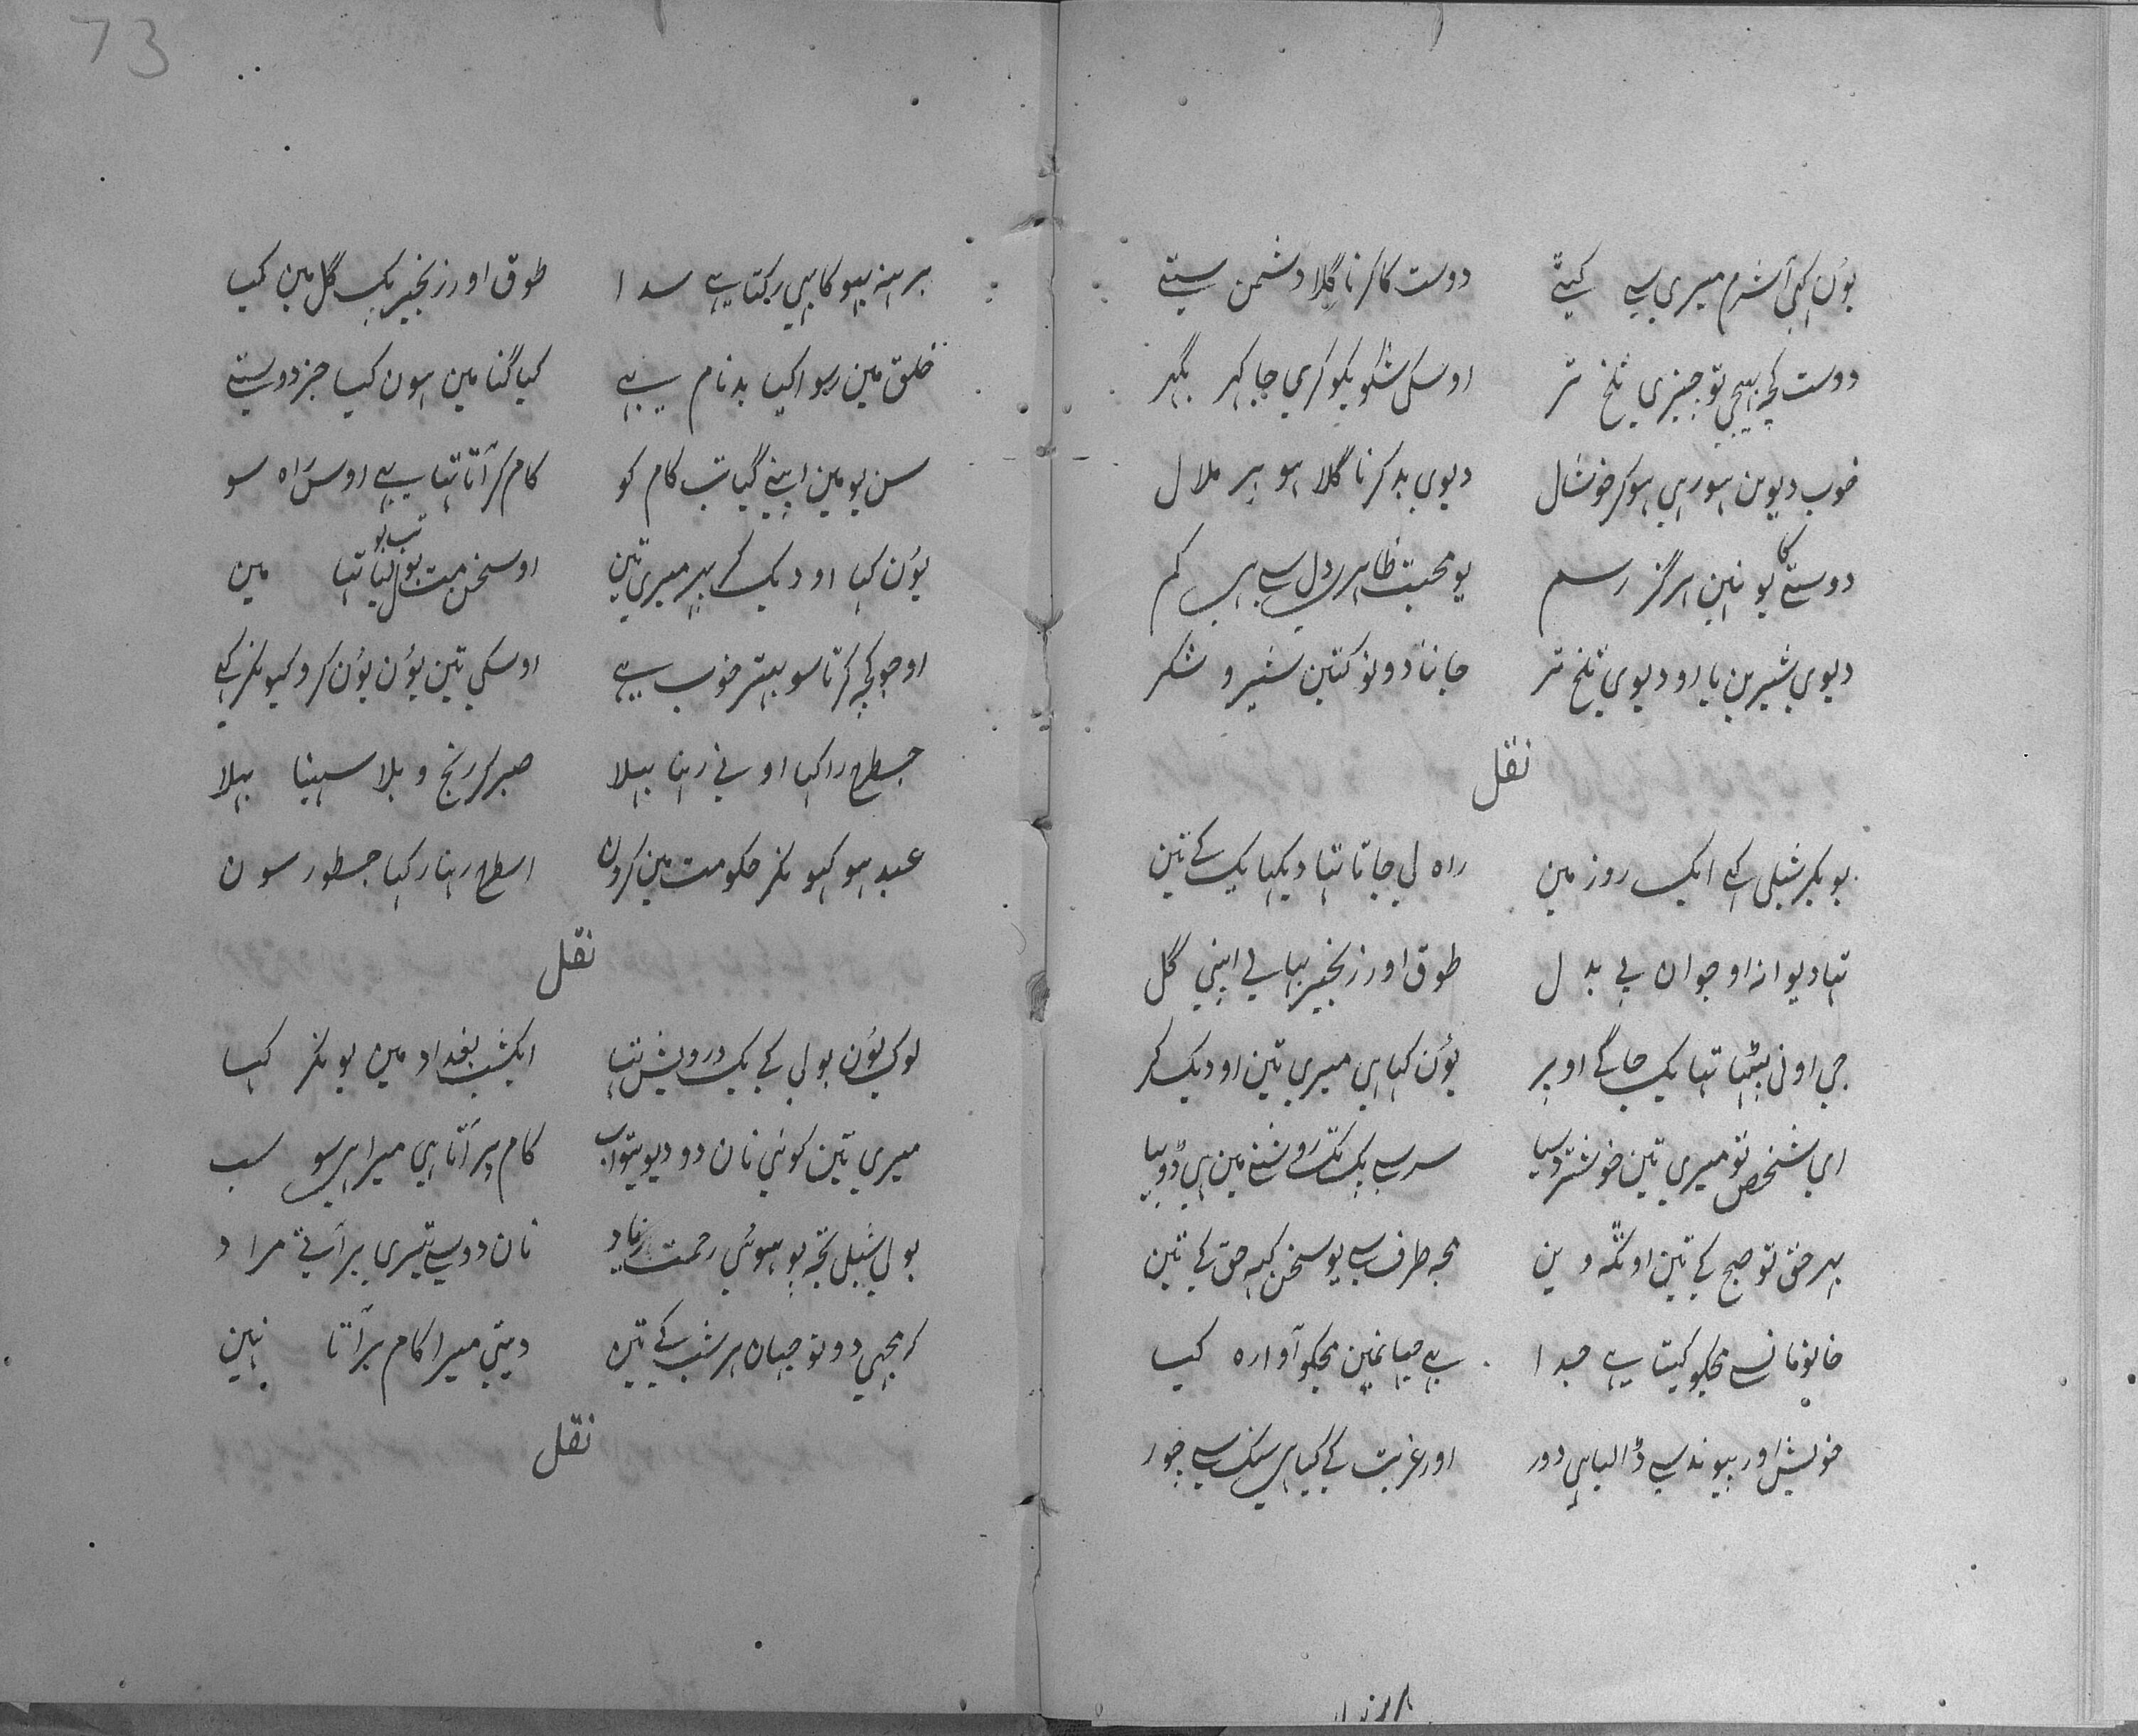 یوُن کہی آشرم میری سی کیتی دوست کا کرنا گلا دشمن ستی
دوست کچہ بہیجی تو چیزی تلخ تر اوسکی شکویکو کری جا کہر بگہر
خوب دیوین ہور ہی ہوکر خوشال دیوی بد کرنا گلا ہو پر ملال
دوستی کا یو نہین ہرگز رسم یو محبت ظاہری دل سی ہی کم
دیوی شیرین یا او دیوی تلخ تر جاننا دونو کتین شیر و شکر
نقل
بوبکر شبلی کہی ایک روز مین راہ لی جاتا تہا دیکہا یک کی تین
تہا دیوانہ او جوان بی بدل طوق اور زنجیر تہا لی اپنی گل
جی اونی بیٹہا تہا یک جاگے اوپر یوُن کہا ہی میری تین او دیک کر
ای شخص تو میری تین خوشتر دسیا سر سی یک تک روشنی مین ہی ڈوبیا
بہر حق تو صبح کی تین اونکہ وین مجہ طرف سی یو سخن کہہ حق کی تین
خانومان سی مجکو کیتا ہی جدا بی حیائمین مجکو آوارہ کیا
خویش اور پیوند سی ڈالیا ہی دور اور غربت کی کیا ہی سنک سی چور
برہنہ بہو کا ہی رکتا ہی سدا طوق اور زنجیر یک گل مین کیا
خلق مین رسوا کیا بدنام ہی کیا گنا مین ہون کیا جز دوستی
سن یو مین اپنی گیا تب کام کو کام کر آتا تہا ہی اوس راہ سو
یوُن کہا او دیک کر پہر میری تین او سخن مت بول تب یو کیا تہا مین
او جو کچہ کرتا سو بہتر خوب ہی اوسکی تین یوُن یوُن کرو کیونکر کہی
جسطرح راکہا اونی رہنا بہلا صبر کر رنج و بلا سہینا بہلا
عبد ہو کیونکر حکومت مین کرون اسطرح رہنا رکہیا جسطور سون
نقل
لوک یوُن بولی کے یک درویش تہا ایکشب بغداد مین یو نکر کہا
میری تین کوئی نان دو دیویتو اب کام بر آتا ہی میرا ہی سو سب
بولی شبلی تجہ پو ہوئی رحمت زیاد نان دو سی تیری بر آتی مراد
کر مجہی دونو جہان ہر شب کے تین دیتی میرا کام بر آتا نہین
نقل